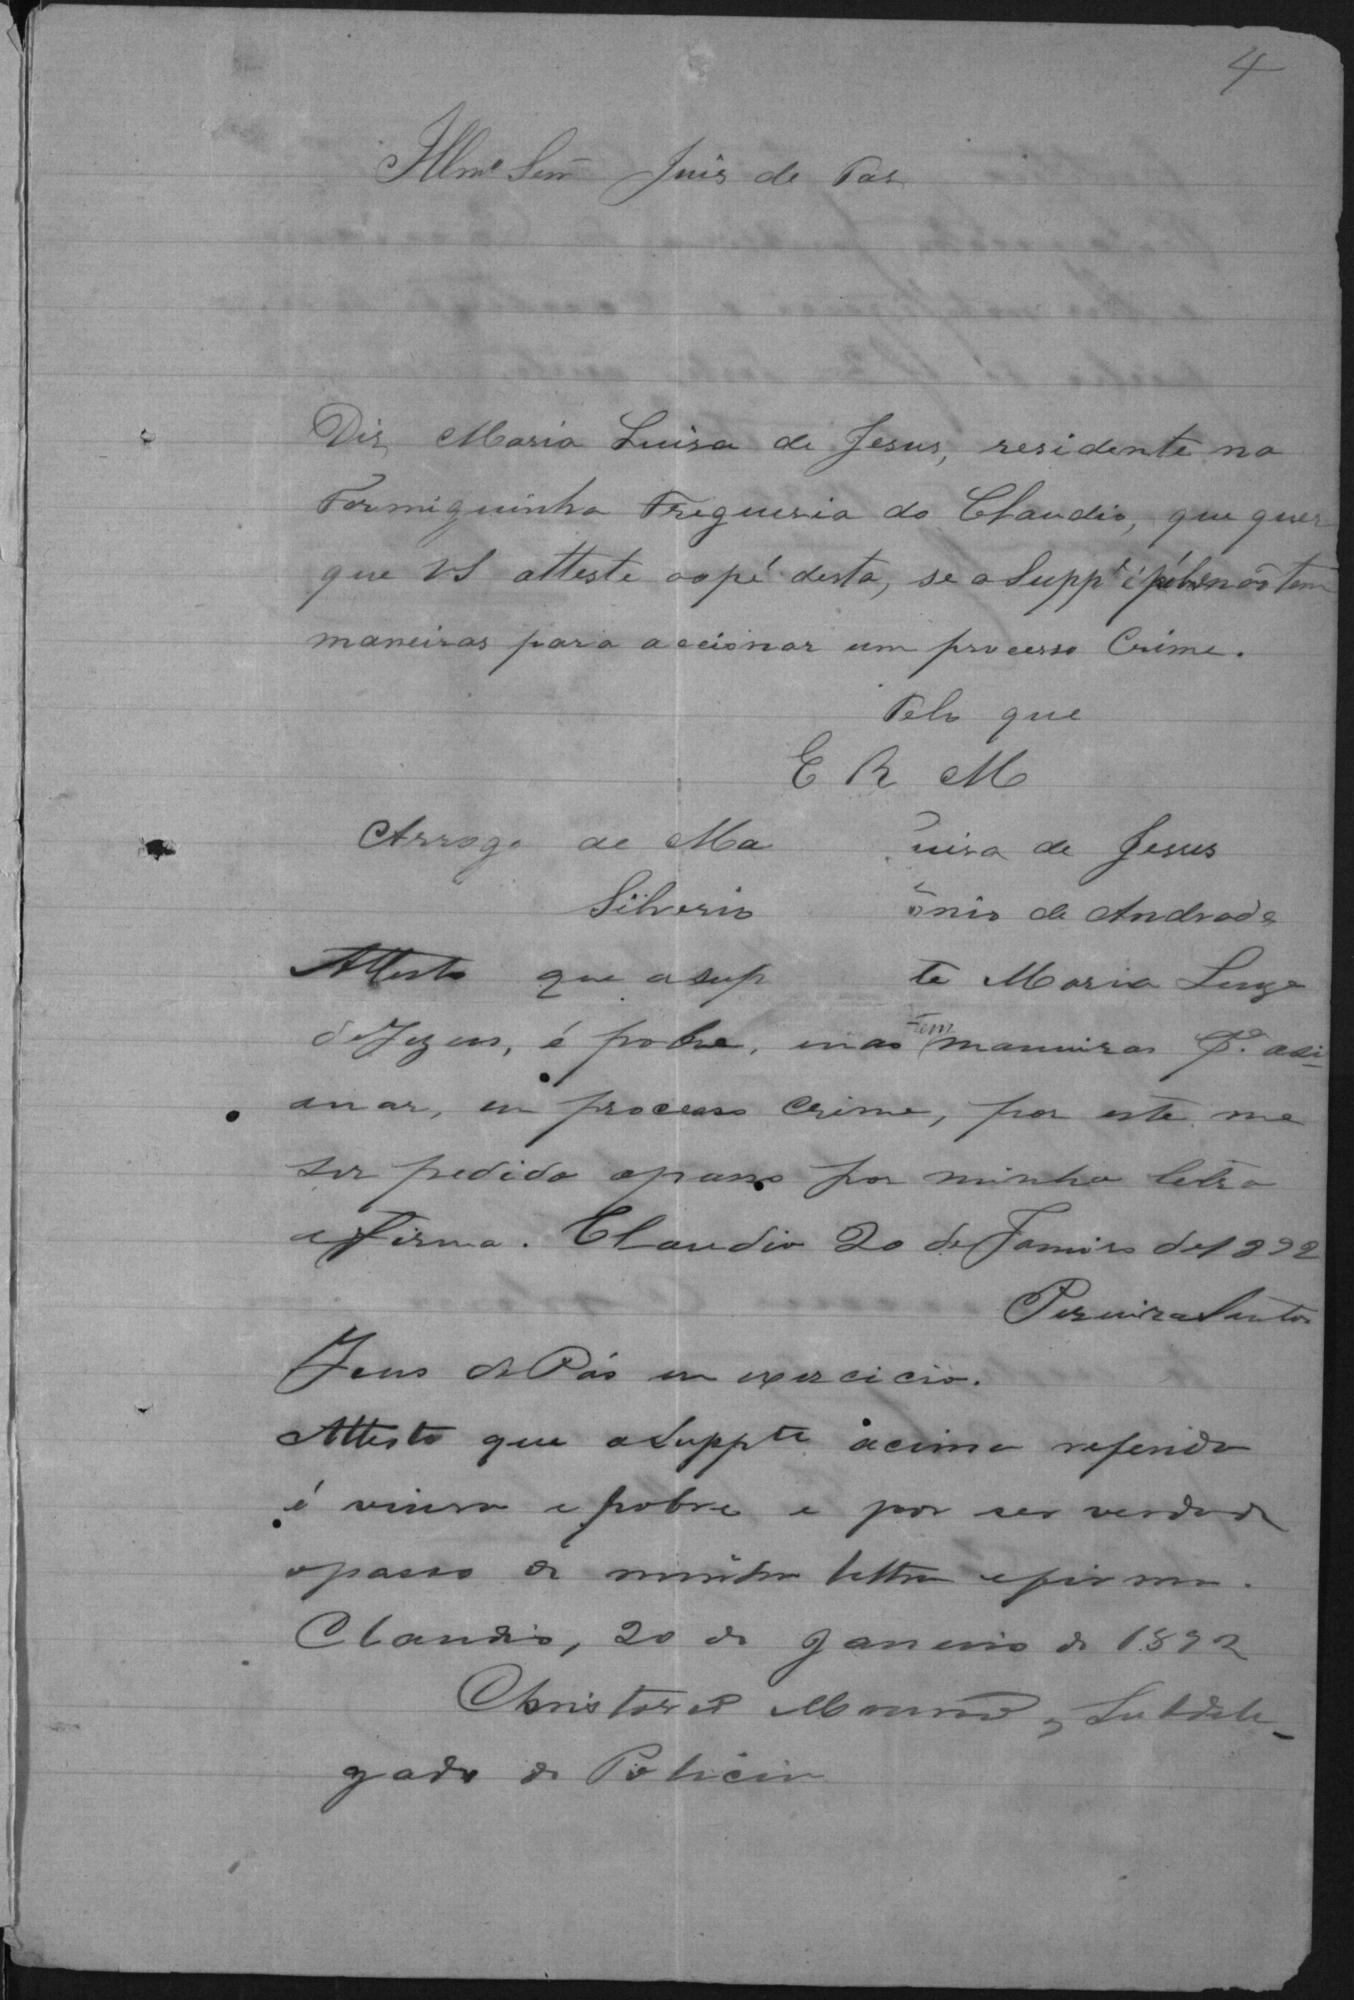 4
Illmo Senr Juis de Pas
Diz Maria Luisa de Jesus, residente na
Formiguinha Freguesia do Claudio, que quer
que VS atteste aopé desta, se a Suppe é pobre não tem
maneiras para accionar um processo Crime.
Pelo que
E R M
Arrogo de Ma uisa de Jesus
Silverio onio de Andrade
Attesto que a sup te Maria Luiza
de Jezus, é pobre, enao tem maneiras Pa. aci-
onar, um processo crime, por este me
ser pedido opasso por minha letra
e firma. Claudio 20 de Janeiro de 1892
Pereira Santos
Jeus de Pás em exercicio.
Attesto que a Suppte acima referida
é viuva e pobre e por ser verdade
opasso de minha lettra e firma.
Claudio, 20 de Janeiro de 1892
Subdele-
gado de Policia